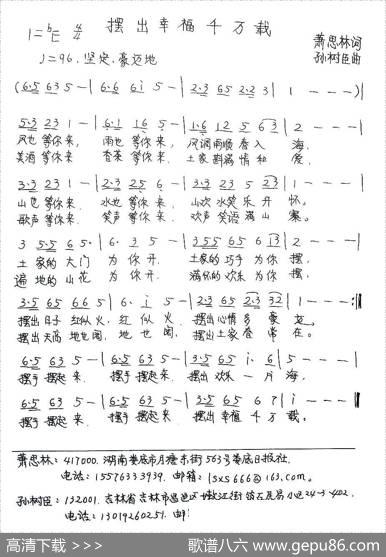 摆出幸福千万载
1=bE 4/4
萧思林词
♩=96. 坚定、豪迈地
孙树臣曲
(6·5 63 5 - | 6·6 6i 5 - | 2·3 65 2·2 3 | 1 - - - )|
5·3 23 1 - | 6·1 16 5 - | 1·6 12 5 63 | 2 - - - |
风也等你来, 雨也等你来, 风调雨顺 海,
笑酒等你来, 香茶等你来, 土家 情和爱,
3·3 23 1 - | 2·3 25 6 - | 3·3 23 5 23 | 1 - - - |
山也等你来, 水也等你来, 山欢水笑乐开怀。
歌声等你来, 笑声等你来, 欢声笑语满山寨。
3 5·5 65· | 6· 3 5 - | 3 55 65 6 13 | 2 - - - |
土家的大门为你开. 土家的巧手为你摆.
遍地的山花为你开. 满怀的欢乐为你摆.
3·5 65 66 5 | 6· i 5 - | 2·3 65 2·3 32 | 1 - - - :|
摆出日子红似火, 红似火, 摆出心情多豪
摆出天高地也阔, 地也阔, 摆出土家 常在。
6·5 63 5 - | 6·5 63 5 - | 3·5 65 i· 6 | 5 - - - |
摆手摆起来, 摆手摆起来, 摆出欢乐一片海,
6·5 63 5 - | 6·5 63 5 - | 3·5 65 6 7 | i - - - ‖
摆手摆起来, 摆手摆起来, 摆出幸福千万载。
萧思林: 417000. 湖南娄底市月塘东街563号娄底日报社.
电话: 15576333939. 邮箱: lsxs666@163.com.
孙树臣: 132001. 吉林省吉林市昌邑区 江街 小区24-3-402.
电话: 13019260257. 邮:
高清下载 => 歌谱八六 www.gepu86.com